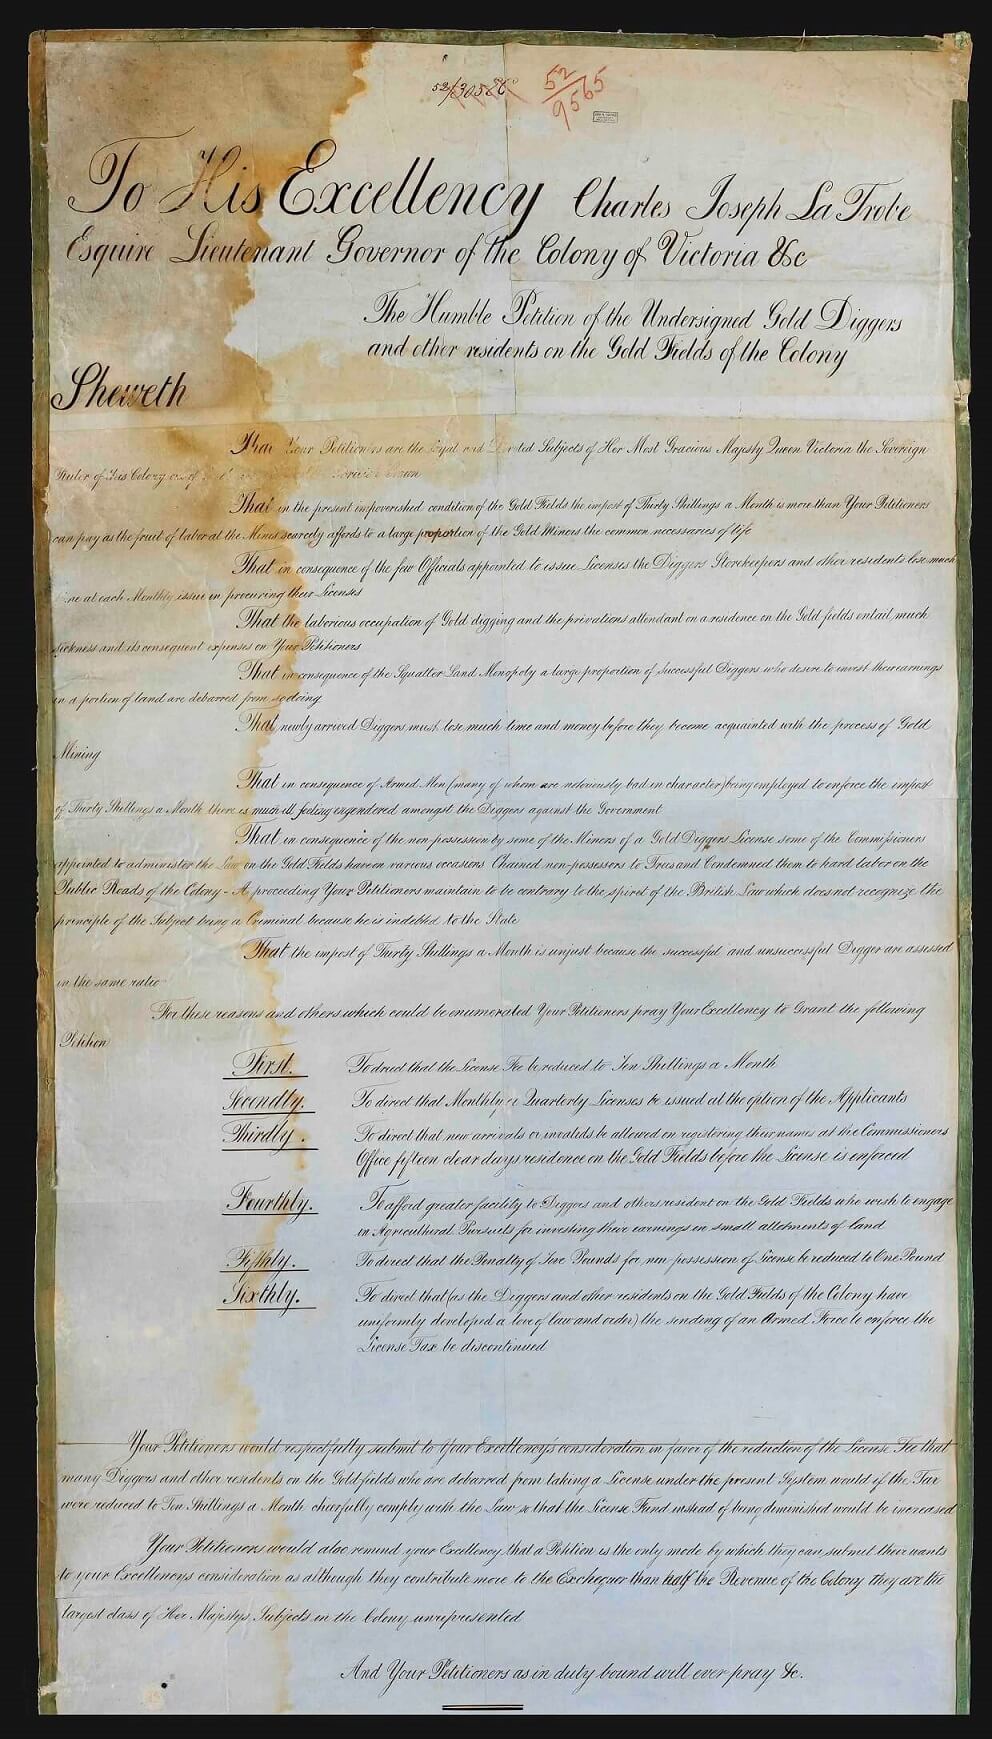 52/30586
52/9565
To His Excellency Charles Joseph La Trobe
Esquire Lieutenant Governor of the Colony of Victoria &c
The Humble Petition of the Undersigned Gold Diggers
and other residents on the Gold Fields of the Colony
Sheweth
That Your Petitioners are the Loyal and Devoted Subjects of Her Most Gracious Majesty Queen Victoria the Sovereign
Ruler of this Colony one of the
That in the present impoverished condition of the Gold Fields the impost of Thirty Shillings a Month is more than Your Petitioners
can pay as the fruit of labor at the Mines scarcely affords to a large proportion of the Gold Miners the common necessaries of life
That in consequence of the few Officials appointed to issue Licenses the Diggers Storekeepers and other residents lose much
time at each Monthly issue in procuring their Licenses
That the laborious occupation of Gold digging and the privations attendant on a residence on the Gold fields entail much
sickness and its consequent expenses on Your Petitioners
That in consequence of the Squatter Land Monopoly a large proportion of Successful Diggers who desire to invest their earnings
in a portion of land are debarred from so doing
That newly arrived Diggers must lose much time and money before they become acquainted with the process of Gold
Mining
That in consequence of Armed Men (many of whom are notoriously bad in character) being employed to enforce the impost
of Thirty Shillings a Month there is much ill feeling engendered amongst the Diggers against the Government
That in consequence of the non possession by some of the Miners of a Gold Diggers License some of the Commissioners
appointed to administer the Law on the Gold Fields have on various occasions Chained non-possessors to Trees and Condemned them to hard labor on the
Public Roads of the Colony - A proceeding Your Petitioners maintain to be contrary to the spirit of the British Law which does not recognize the
principle of the Subject being a Criminal because he is indebted to the State
That the impost of Thirty Shillings a Month is unjust because the successful and unsuccessful Digger are assessed
in the same ratio
For these reasons and others which could be enumerated Your Petitioners pray Your Excellency to Grant the following
Petition
First. To direct that the License Fee be reduced to Ten Shillings a Month
Secondly. To direct that Monthly or Quarterly Licenses be issued at the option of the Applicants
Thirdly. To direct that new arrivals or invalids be allowed on registering their names at the Commissioners
Office fifteen clear days residence on the Gold Fields before the License is enforced
Fourthly. To afford greater facility to Diggers and others resident on the Gold Fields who wish to engage
in Agricultural Pursuits for investing their earnings in small allotments of land
Fifthly. To direct that the Penalty of Five Pounds for non possession of License be reduced to One Pound
Sixthly. To direct that (as the Diggers and other residents on the Gold Fields of the Colony have
uniformly developed a love of law and order) the sending of an Armed Force to enforce the
License Tax be discontinued
Your Petitioners would respectfully submit to Your Excellency's consideration in favor of the reduction of the License Fee that
many Diggers and other residents on the Gold fields who are debarred from taking a License under the present System would if the Tax
were reduced to Ten Shillings a Month cheerfully comply with the Law so that the License Fund instead of being diminished would be increased
Your Petitioners would also remind your Excellency that a Petition is the only mode by which they can submit their wants
to your Excellency's consideration as although they contribute more to the Exchequer than half the Revenue of the Colony they are the
largest class of Her Majesty's Subjects in the Colony unrepresented
And Your Petitioners as in duty bound will ever pray &c.